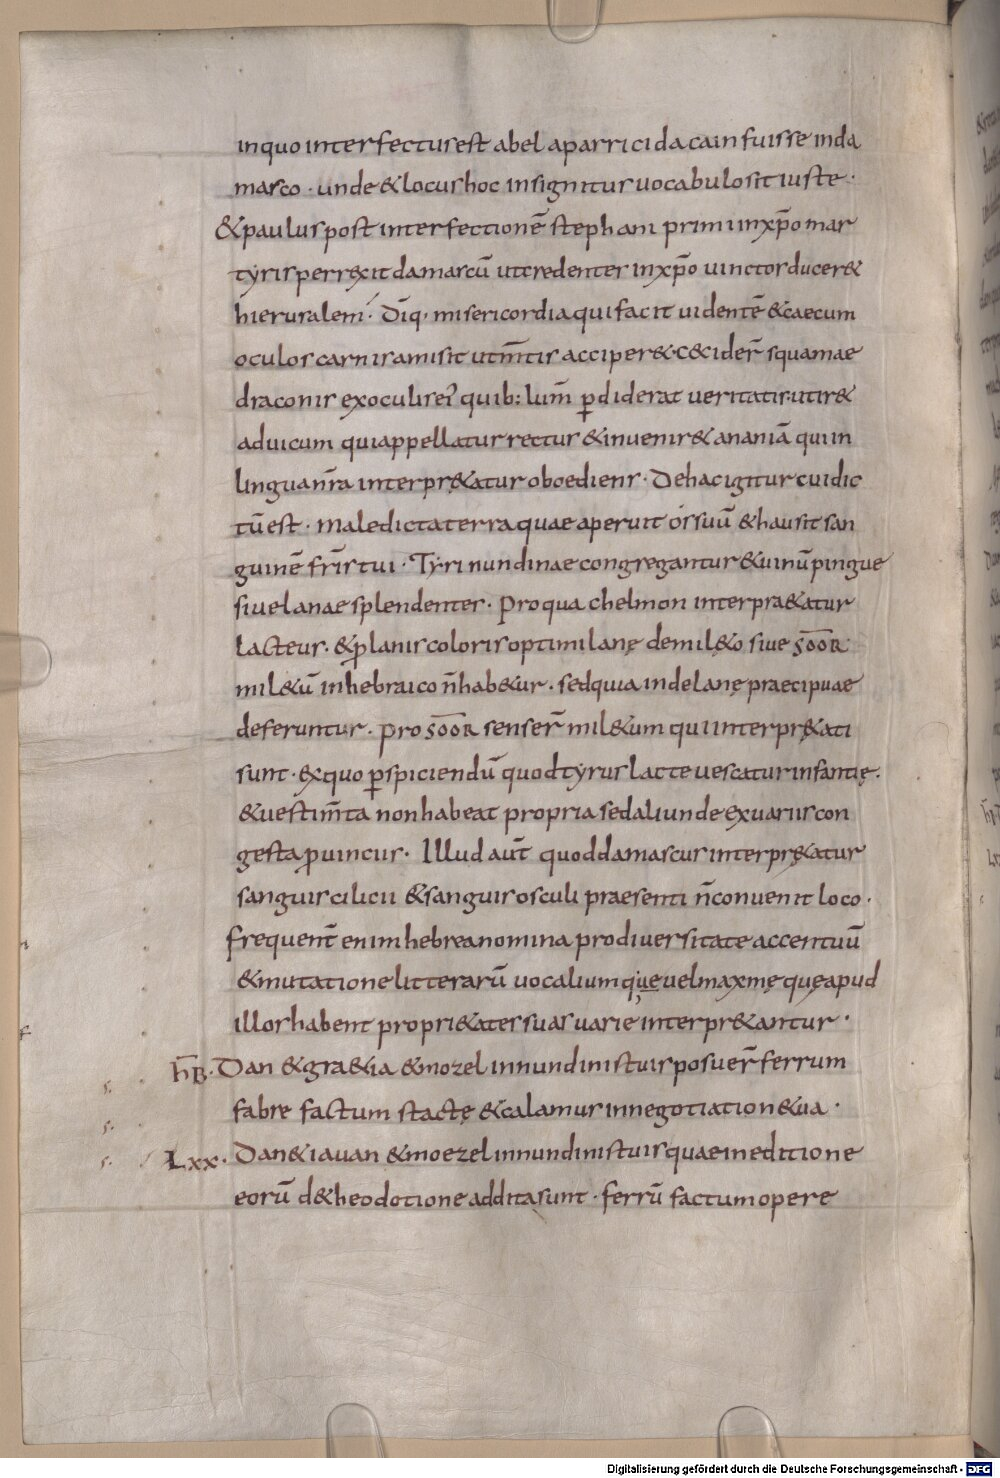 inquo interfectus est abel aparricida cain fuisse inda
masco · unde & locus hoc insignitur uocabulo sit iuste ·
& paulus post interfectionē stephani primi inxp̄o mar
tyris perrexit damascū ut credentes inxp̄o uinctos ducer&
hierusalem · Dīq· misericordia qui facit uidentē & caecum
oculos carnis amisit ut m̄tis acciper& · & cider̄ squamae
draconis ex oculis ei' quib; lum̄ ꝑdiderat ueritatis · ut ir&
ad uicum qui appellatur rectus & inuenir& ananiā qui in
lingua nr̄a interpr&atur oboediens · De hac igitur cui dic
tū est · maledicta terra quae aperuit os suū & hausit san
guinē fr̄is tui · Tyri nundinae congregantur & uinū pingue
siue lanae splendentes · Pro qua chelmon interpra&atur
lacteus · & planis coloris optimi lanę de mil&o siue sōōr
mil&ū in hebraico n̄ hab&ur · sed quia inde lanę praecipuae
deferuntur · pro sōōr senser̄ mil&um qui interpr&ati
sunt · ex quo ꝑspiciendū quod tyrus lacte uescatur infantię ·
& uestim̄ta non habeat propria sed aliunde ex uariis con
gesta ꝓuinciis · Illud aut̄ quod damascus interpr&atur
sanguis cilicii & sanguis osculi praesenti n̄ conuenit loco ·
frequent̄ enim hebrea nomina pro diuersitate accentuū
& mutatione litterarū uocalium quę uel maxmę quę apud
illos habent propri&ates suas uarię interpr&antur ·
h̄B · Dan & gra&ia & mozel in nundinis tuis posuer̄ ferrum
fabre factum stactę & calamus in negotiation& ua ·
Lxx · Dan & iauan & moezel in nundinis tuis quae in editione
eorū d& heodotione addita sunt · ferrū factum opere
Digitalisierung gefördert durch die Deutsche Forschungsgemeinschaft - DFG